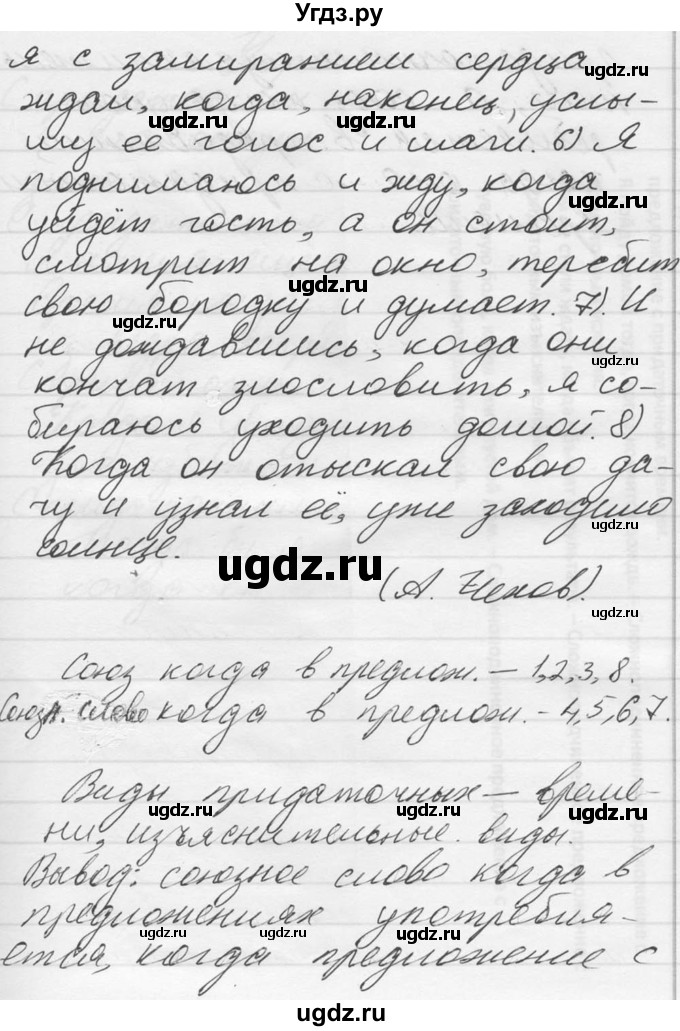 Угдз.ру
я с замиранием сердца
ждал, когда, наконец, услы-
шу её голос и шаги. 6) Я
поднимаюсь и жду, когда
уйдёт гость, а он стоит,
смотрит на окно, теребит
свою бородку и думает. 7). И
не дождавшись, когда они
кончат злословить, я со-
бираюсь уходить домой. 8)
Когда он отыскал свою да-
чу и узнал её, уже заходило
солнце.
(А. Чехов).
Союз когда в предлож. – 1,2,3,8.
Союзн. слово когда в предлож. - 4,5,6,7.
Виды придаточных – време-
ни, изъяснительные виды.
Вывод: союзное слово когда в
предложениях употребля-
ется, когда предложение с
ugdz.ru